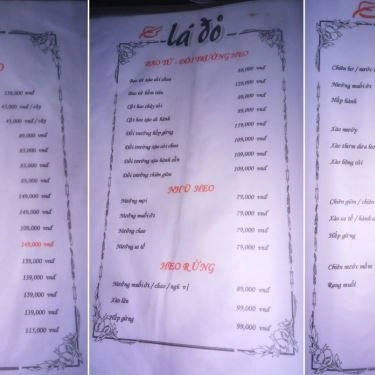 EO
139,000 vnđ
45,000 vnđ / cây
45,000 vnđ / cây
89,000 vnđ
85,000 vnđ
85,000 vnđ
89,000 vnđ
149,000 vnđ
149,000 vnđ
109,000 vnđ
149,000 vnđ
139,000 vnđ
139,000 vnđ
139,000 vnđ
139,000 vnđ
115,000 vnđ
lá đỏ
BAO TỬ - DỒI TRƯỜNG HEO
Bao tử xào cải chua 89,000 vnđ
Bao tử hầm tiêu 129,000 vnđ
Cật heo cháy tỏi 89,000 vnđ
Cật heo xào cải 89,000 vnđ
Dồi trường hấp gừng 119,000 vnđ
Dồi trường xào cải chua 109,000 vnđ
Dồi trường xào hành cần 109,000 vnđ
Dồi trường chiên giòn 109,000 vnđ
NHŨ HEO
Nướng mọi 79,000 vnđ
Nướng muối ớt 79,000 vnđ
Nướng chao 79,000 vnđ
Nướng sa tế 79,000 vnđ
HEO RỪNG
Nướng muối ớt / chao / ngũ vị 89,000 vnđ
Xào lăn 99,000 vnđ
Hấp gừng 99,000 vnđ
Chiên bơ / nước
Nướng muối ớt
Hấp hành
Xào mướp
Xào thơm dưa leo
Xào bông cải
Chiên giòn / chiên
Xào sa tế / hành
Hấp gừng
Chiên nước mắm
Rang muối